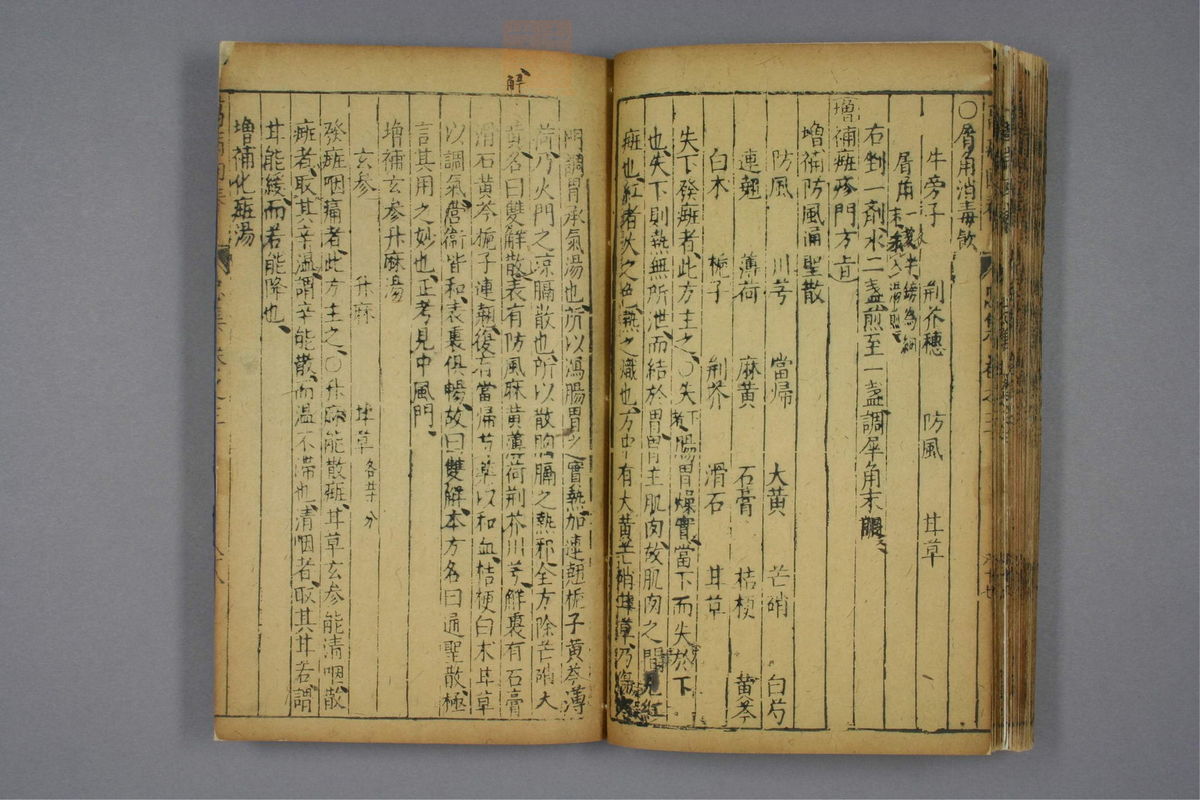 ○犀角消毒飲
牛旁子 荆芥穂 防風 甘草
犀角一錢半鎊為細末
右剉一剤水二盞煎至一盞調犀角末服之
增補癍疹門方旨
增補防風通聖散
防風 川芎 當歸 大黄 芒硝 白芍
連翹 薄荷 麻黄 石膏 桔梗 黄芩
白木 梔子 荆芥 滑石 甘草
失下發癍者此方主之○失下者腸胃燥實當下而失於下
也失下則熱無所泄而結於胃胃主肌肉故肌肉之間見紅
癍也紅者火之色熱之熾也方中有大黄芒硝甘草乃傷寒
門調胃承氣湯也所以瀉腸胃之實熱加連翹梔子黄芩薄
荷乃火門之凉膈散也所以散胸膈之熱邪全方除芒硝大
黄名曰雙解散表有防風麻黄薄荷荆芥川芎觧裏有石膏
滑石黄芩梔子連翹復有當帰芍藥以和血桔梗白木甘草
以調氣營衛皆和表裏俱暢故曰雙解本方名曰通聖散極
言其用之妙也正考見中風門
增補玄参升麻湯
玄参 升麻 甘草各等分
發癍咽痛者此方主之○升麻能散癍甘草玄参能清咽散
癍者取其辛温謂辛能散而温不滞也清咽者取其甘苦謂
甘能緩而苦能降也
增補化癍湯
解